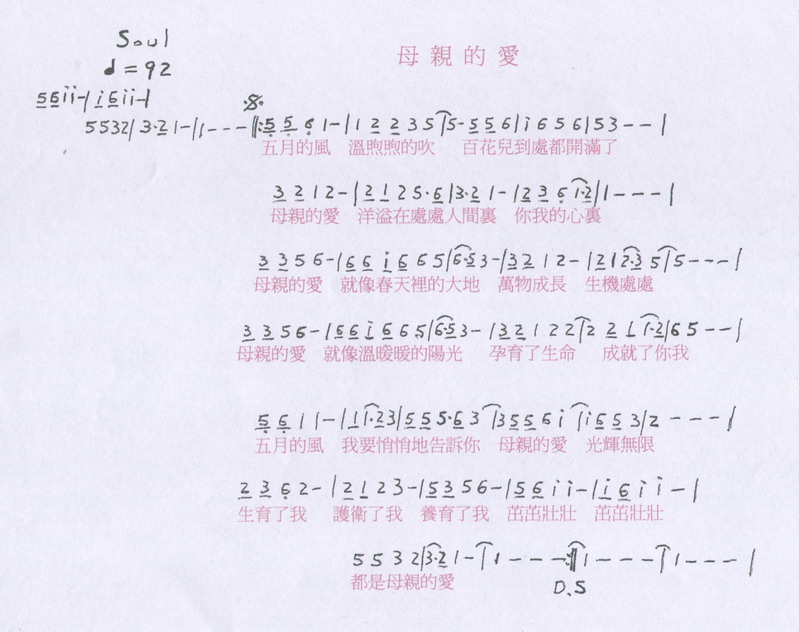 Soul
母親的愛
♩=92
5 6 i i - | i 6 i i - |
5 5 3 2 | 3 · 2 1 - | 1 - - - ‖: 5 5 6 1 - | 1 2 2 3 5 | 5 · 5 5 6 | i 6 5 6 | 5 3 - - |
五月的風 溫煦煦的吹 百花兒到處都開滿了
3 2 1 2 - | 2 1 2 5 · 6 | 3 · 2 1 - | 2 3 6 1 · 2 | 1 - - - |
母親的愛 洋溢在處處人間裏 你我的心裏
3 3 5 6 - | 6 6 i 6 6 5 | 6 · 5 3 - | 3 2 1 2 - | 2 1 2 · 3 5 | 5 - - - |
母親的愛 就像春天裡的大地 萬物成長 生機處處
3 3 5 6 - | 6 6 i 6 6 5 | 6 · 5 3 - | 3 2 1 2 2 | 2 2 1 1 · 2 | 6 5 - - |
母親的愛 就像溫暖暖的陽光 孕育了生命 成就了你我
5 6 1 1 - | 1 1 · 2 3 | 5 5 5 · 6 3 | 3 5 5 6 i | i 6 5 3 | 2 - - - |
五月的風 我要悄悄地告訴你 母親的愛 光輝無限
2 3 6 2 - | 2 1 2 3 - | 5 3 5 6 - | 5 6 i i - | i 6 i i - |
生育了我 護衛了我 養育了我 茁茁壯壯 茁茁壯壯
5 5 3 2 | 3 · 2 1 - | 1 - - - :‖ 1 - - - | 1 - - - |
都是母親的愛
D.S